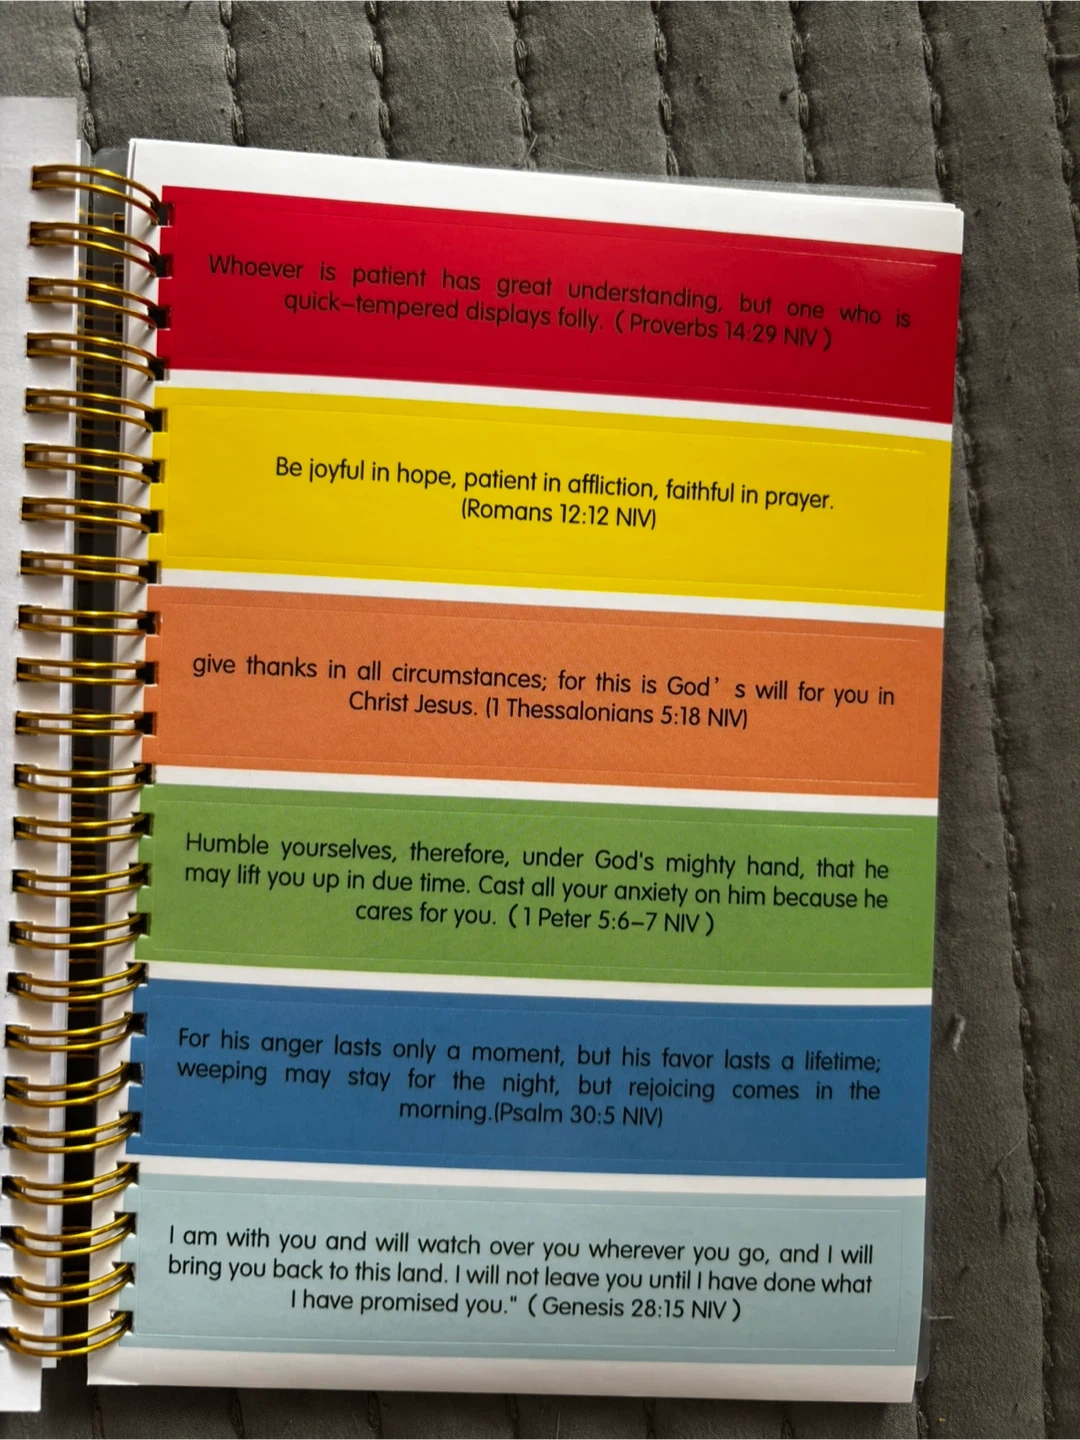 Whoever is patient has great understanding, but one who is
quick–tempered displays folly. ( Proverbs 14:29 NIV )
Be joyful in hope, patient in affliction, faithful in prayer.
(Romans 12:12 NIV)
give thanks in all circumstances; for this is God’ s will for you in
Christ Jesus. (1 Thessalonians 5:18 NIV)
Humble yourselves, therefore, under God's mighty hand, that he
may lift you up in due time. Cast all your anxiety on him because he
cares for you. ( 1 Peter 5:6–7 NIV )
For his anger lasts only a moment, but his favor lasts a lifetime;
weeping may stay for the night, but rejoicing comes in the
morning.(Psalm 30:5 NIV)
I am with you and will watch over you wherever you go, and I will
bring you back to this land. I will not leave you until I have done what
I have promised you." ( Genesis 28:15 NIV )